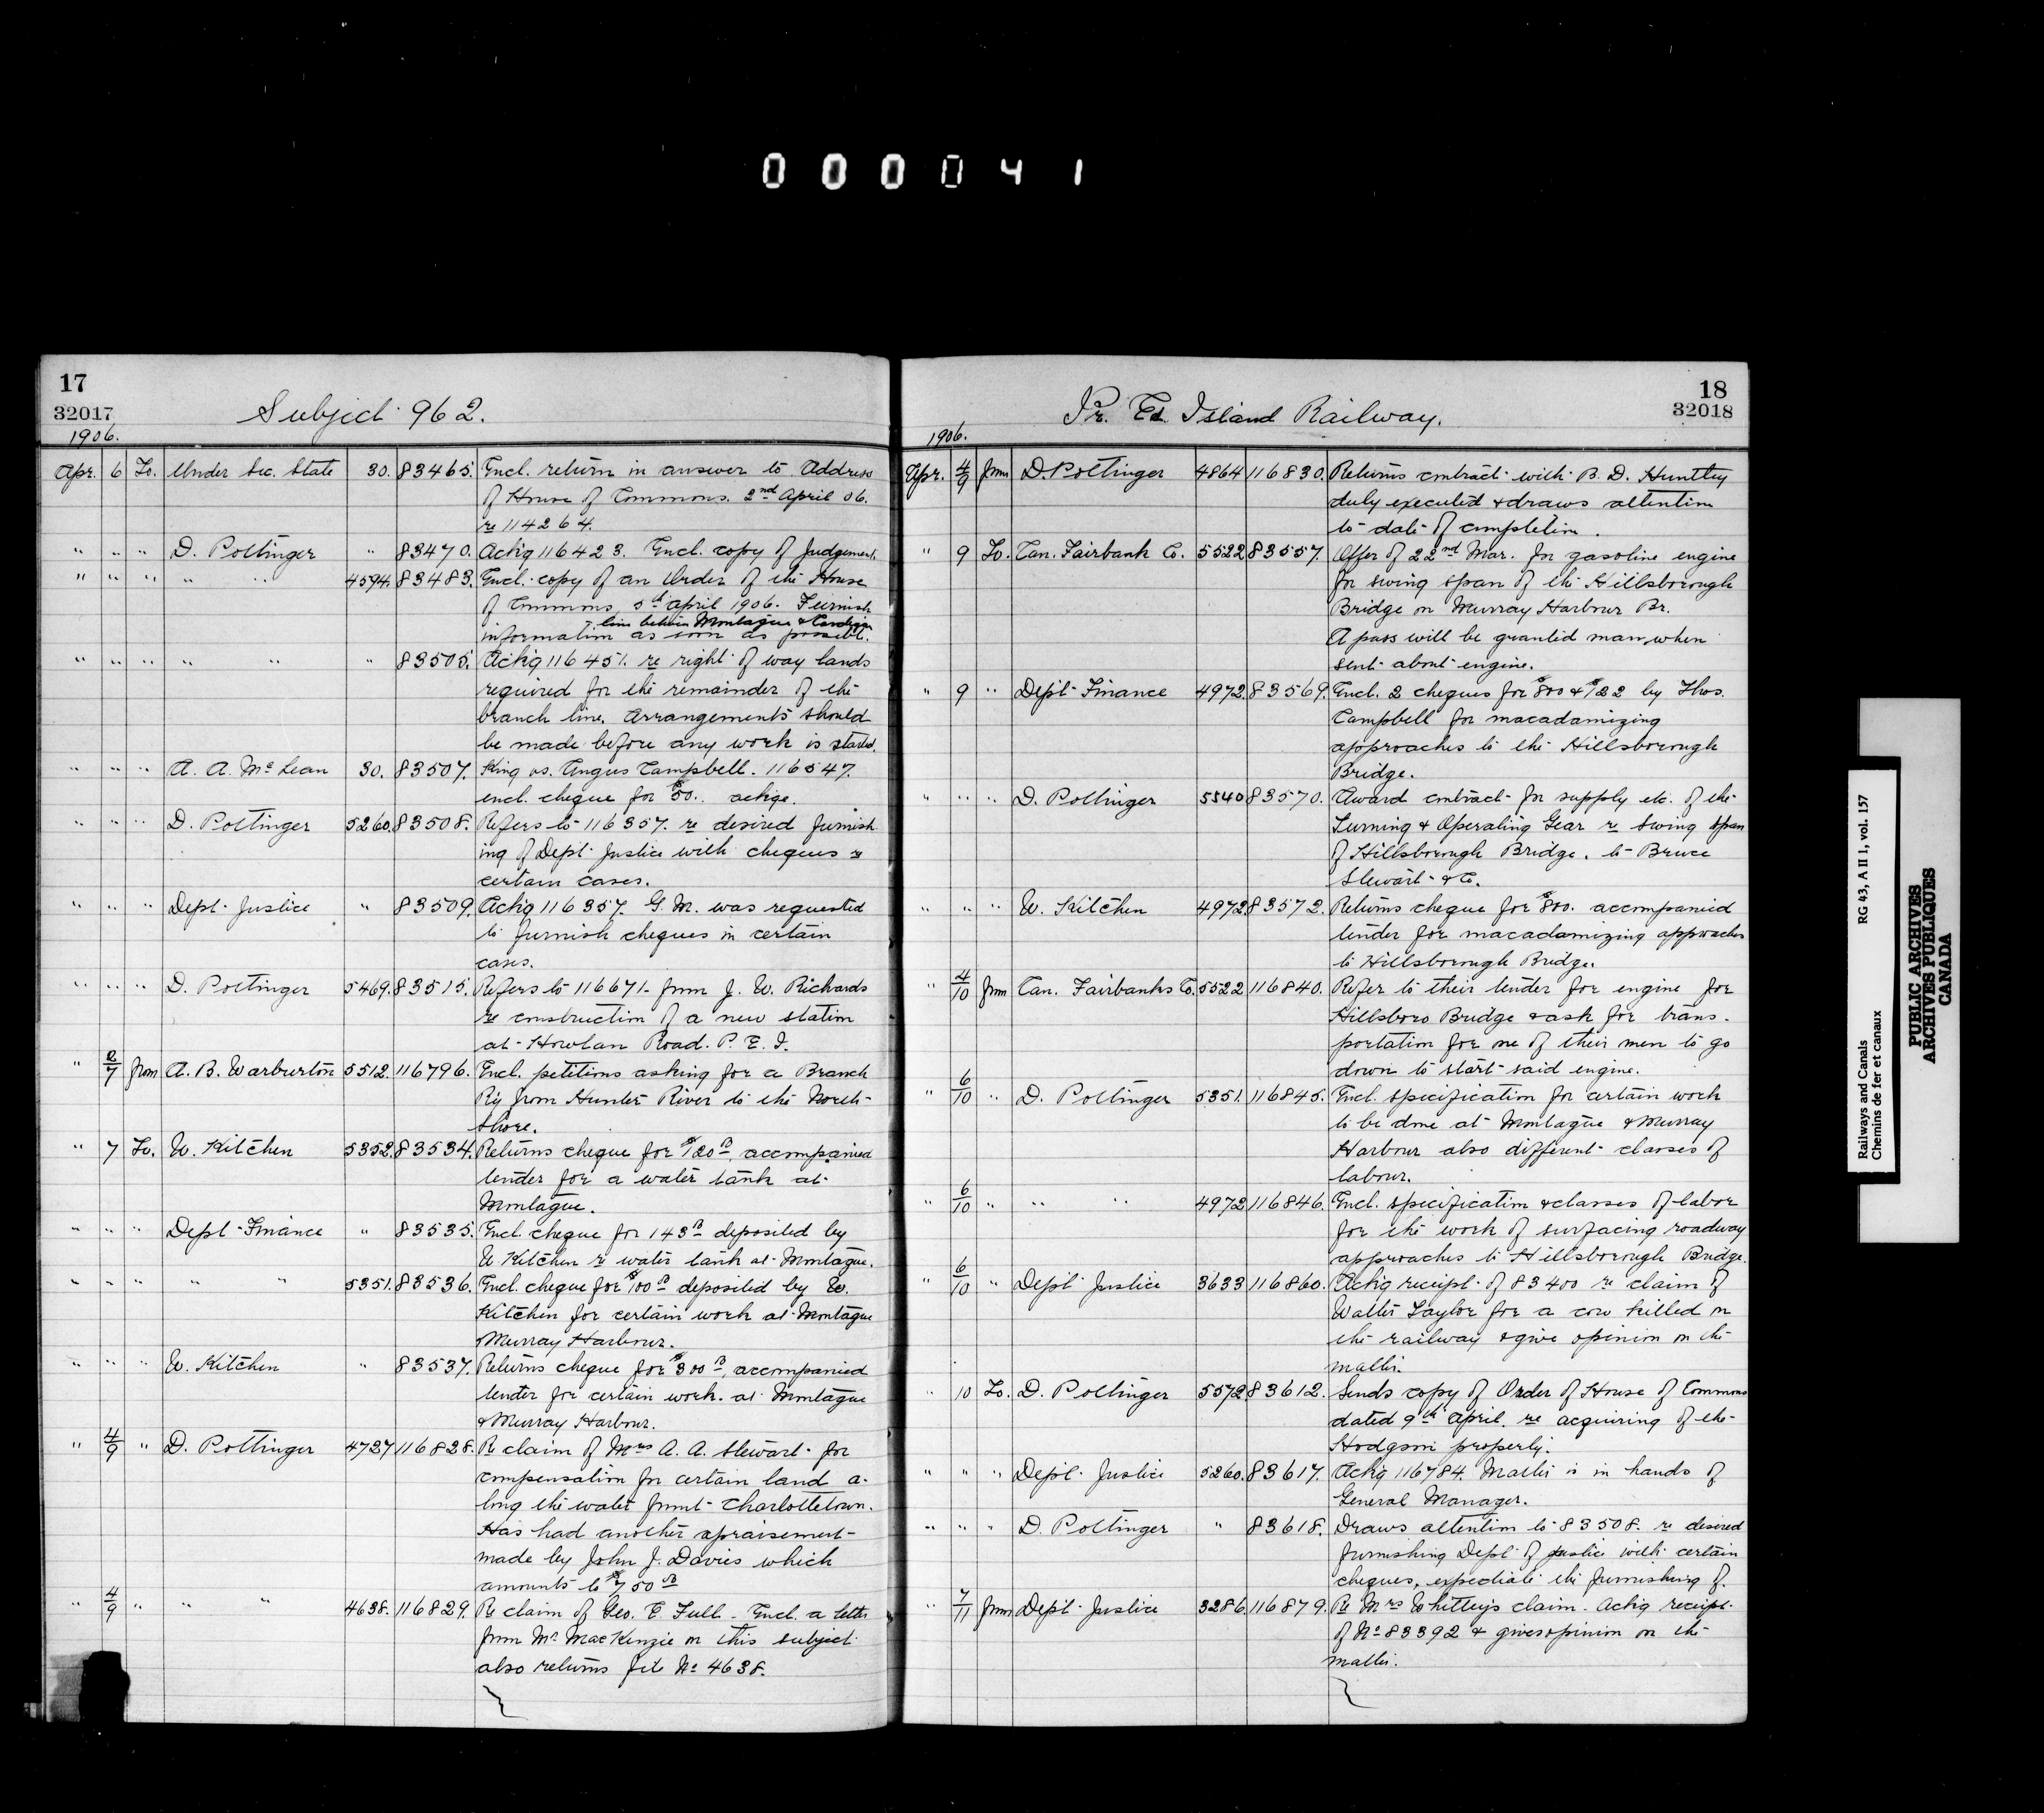 000041
17
32017
Subject 962.
1906.
Apr. 6 To. Under Sec. State 30. 83465. Encl. return in answer to Address
of House of Commons. 2nd April 06.
re 114264.
" " " D. Pottinger " 83470. Ackg 116423. Encl. copy of Judgement.
" " " " " 4594. 83483. Encl. copy of an Order of the House
of Commons, 5th April 1906. Furnish
line between Montague & Cardigan
information as soon as possible.
" " " " " " 83505. Ackg 116451. re right of way lands
required for the remainder of the
branch line. Arrangements should
be made before any work is started.
" " " A. A. McLean 30. 83507. King vs. Angus Campbell. 116547.
encl. cheque for $50.. ackge.
" " " D. Pottinger 5260. 83508. Refers to 116357. re desired furnish
ing of Dept. Justice with cheques re
certain cases.
" " " Dept. Justice " 83509. Ackg 116357. G. M. was requested
to furnish cheques in certain
cases.
" " " D. Pottinger 5469. 83515. Refers to 116671 from J. W. Richards
re construction of a new station
at Howlan Road. P. E. I.
" 2/7 from A. B. Warburton 5512. 116796. Encl. petitions asking for a Branch
Ry from Hunter River to the North
Shore.
" 7 To. W. Kitchen 5352. 83534. Returns cheque for $120.00, accompanied
tender for a water tank at
Montague.
" " " Dept Finance " 83535. Encl cheque for 143.00 deposited by
W Kitchen re water tank at Montague.
" " " " " 5351. 83536. Encl. cheque for $100.00 deposited by W.
Kitchen for certain work at Montague
& Murray Harbour.
" " " W. Kitchen " 83537. Returns cheque for $300.00, accompanied
tender for certain work. at Montague
& Murray Harbour.
" 4/9 " D. Pottinger 4727 116828. Re claim of Mrs A. A. Stewart for
compensation for certain land a-
long the water front Charlottetown.
Has had another apraisement
made by John J. Davies which
amounts to $750.00
" 4/9 " " " 4638. 116829. Re claim of Geo. E Full. Encl. a letter
from Mr MacKenzie on this subject
also returns file No 4638.
18
32018
Pr. Ed. Island Railway.
1906.
Apr. 4/9 from D. Pottinger 4864 116830. Returns contract with B. D. Huntley
duly executed & draws attention
to date of completion.
" 9 To. Can. Fairbank Co. 5522 83557. Offer of 22nd Mar. for gasoline engine
for swing span of the Hillsborough
Bridge on Murray Harbour Br.
A pass will be granted man, when
sent about engine.
" 9 " Dept Finance 4972. 83569. Encl. 2 cheques for $800 & $122 by Thos.
Campbell for macadamizing
approaches to the Hillsborough
Bridge.
" " " D. Pottinger 5540 83570. Award contract for supply etc. of the
Turning & Operating Gear re Swing span
of Hillsborough Bridge. to Bruce
Stewart & Co.
" " " W. Kitchen 4972 83572. Returns cheque for $800. accompanied
tender for macadamizing approaches
to Hillsborough Bridge.
" 4/10 from Can. Fairbanks Co. 5522 116840. Refer to their tender for engine for
Hillsboro Bridge & ask for trans-
portation for one of their men to go
down to start said engine.
" 6/10 " D. Pottinger 5351. 116845. Encl. specification for certain work
to be done at Montague & Murray
Harbour also different classes of
labour.
" 6/10 " " " 4972 116846. Encl. specification & classes of labor
for the work of surfacing roadway
approaches to Hillsborough Bridge.
" 6/10 " Dept Justice 3633 116860. Ackg receipt of 83400 re claim of
Walter Taylor for a cow killed on
the railway & give opinion on the
matter.
" 10 To. D. Pottinger 5572. 83612. Sends copy of Order of House of Commons
dated 9th April. re acquiring of the
Hodgson property.
" " " Dept. Justice 5260. 83617. Ackg 116784. Matter is in hands of
General Manager.
" " " D. Pottinger " 83618. Draws attention to 83508. re desired
furnishing Dept of Justice with certain
cheques, expediate the furnishing of.
" 7/11 from Dept. Justice 3286. 116879. Re Mrs Whitley's claim. Ackg receipt
of No 83392 & gives opinion on the
matter.
Railways and Canals
Chemins de fer et canaux
RG 43, A II 1, vol. 157
PUBLIC ARCHIVES
ARCHIVES PUBLIQUES
CANADA